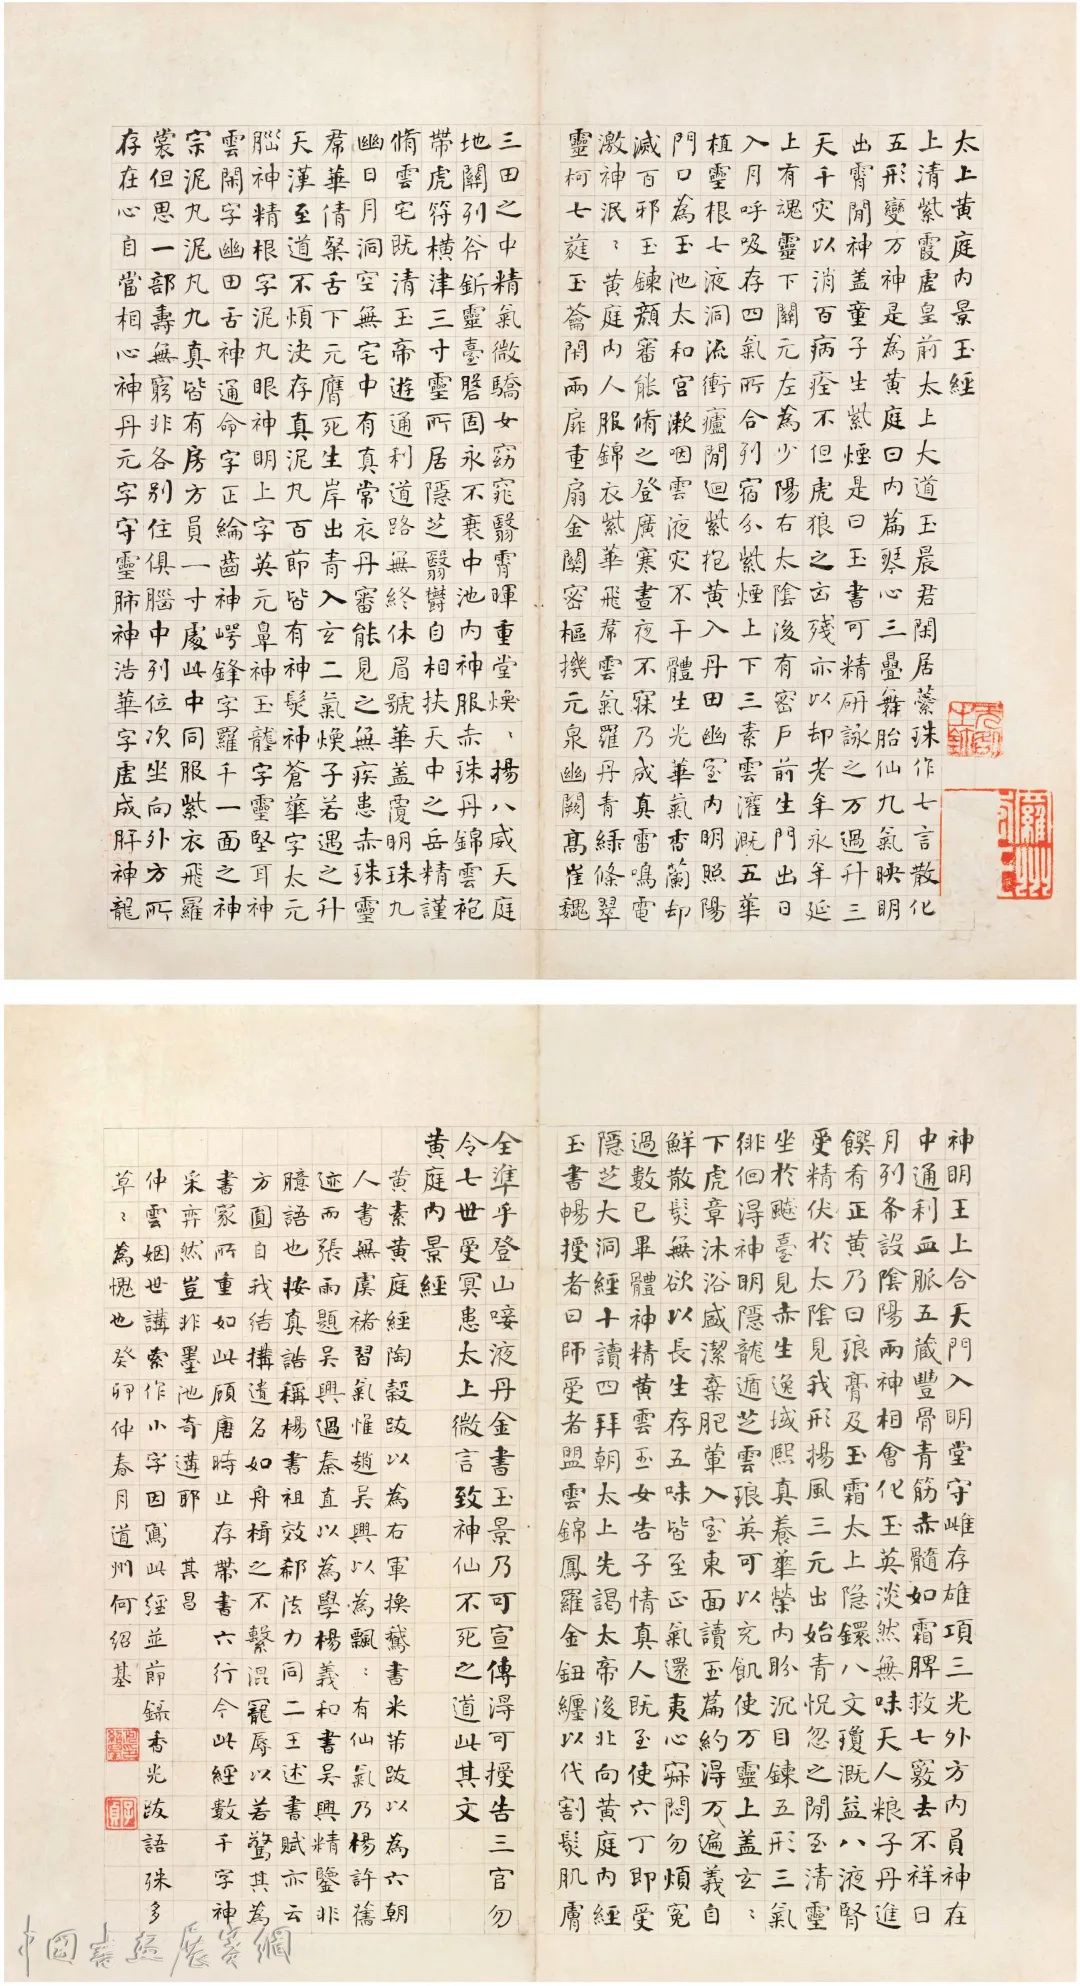 太上黄庭内景玉經
上清紫霞虚皇前太上大道玉晨君閑居蘂珠作七言散化
五形變万神是為黄庭曰内篇琴心三疊舞胎仙九氣映明
出霄閒神盖童子生紫煙是曰玉書可精研詠之万過升三
天千灾以消百病痊不但虎狼之凶残亦以却老年永年延
上有魂靈下關元左為少陽右太陰後有密戶前生門出日
入月呼吸存四氣所合列宿分紫煙上下三素雲灌溉五華
植靈根七液洞流衝廬閒迴紫抱黄入丹田幽室内明照陽
門口為玉池太和宮漱咽雲液灾不干體生光華氣香蘭却
滅百邪玉鍊顔審能脩之登廣寒晝夜不寐乃成真雷鳴電
激神泯ミ黄庭内人服錦衣紫華飛帬雲氣羅丹青緑條翠
靈柯七蕤玉籥閉兩扉重扇金關密樞機元泉幽闕髙崔巍
三田之中精氣微驕女窈窕翳霄暉重堂煥ミ揚八威天庭
地關列斧斤靈臺盤固永不衰中池内神服赤珠丹錦雲袍
帶虎符横津三寸靈所居隱芝翳欝自相扶天中之岳精謹
脩雲宅既清玉帝遊通利道路無終休眉號華盖覆明珠九
幽日月洞空無宅中有真常衣丹審能見之無疾患赤珠靈
帬華倩粲舌下元膺死生岸出青入玄二氣煥子若遇之升
天漢至道不煩决存真泥丸百節皆有神髮神蒼華字太元
腦神精根字泥丸眼神明上字英元鼻神玉壟字靈堅耳神
雲閑字幽田舌神通命字正綸齒神崿鋒字羅千一面之神
宗泥丸泥丸九真皆有房方員一寸處此中同服紫衣飛羅
裳但思一部壽無窮非各别住俱腦中列位次坐向外方所
存在心自當相心神丹元字守靈肺神浩華字虚成肝神龍
神明王上合天門入明堂守雌存雄項三光外方内員神在
中通利血脈五藏豐骨青筋赤髓如霜脾救七竅去不祥日
月列布設陰陽兩神相會化玉英淡然無味天人粮子丹進
饌肴正黄乃曰琅膏及玉霜太上隐鐶八文瓊溉益八液腎
受精伏於太陰見我形揚風三元出始青怳忽之閒至清靈
坐於飈臺見赤生逸域熙真養華榮内盼沉目鍊五形三氣
徘徊得神明隱龍遁芝雲琅英可以充飢使万靈上盖玄ミ
下虎章沐浴盛潔棄肥葷入室東面讀玉篇約得万遍義自
鮮散髮無欲以長生存五味皆至正氣還夷心寂悶勿煩冤
過數已畢體神精黄雲玉女告子情真人既至使六丁即受
隱芝大洞經十讀四拜朝太上先謁太帝後北向黄庭内經
玉書暢授者曰師受者盟雲錦鳳羅金鈕纏以代割髮肌膚
全準乎登山唼液丹金書玉景乃可宣傳得可授告三官勿
令七世受冥患太上微言致神仙不死之道此其文
黄庭内景經
黄素黄庭經陶穀跋以為右軍換鵝書米芾跋以為六朝
人書無虞褚習氣惟趙吳興以為飄ミ有仙氣乃楊許舊
迹而張雨題吳興過秦直以為學楊義和書吳興精鑒非
臆語也按真誥稱楊書祖效郗法力同二王述書賦亦云
方圓自我結搆遺名如舟楫之不繫混寵辱以若驚其為
書家所重如此顧唐時止存帶書六行今此經數千字神
采弈然豈非墨池奇遘耶 其昌
仲雲姻世講索作小字因寫此經並節錄香光跋語殊多
草ミ為愧也癸卯仲春月道州何紹基
中國書法展賽網